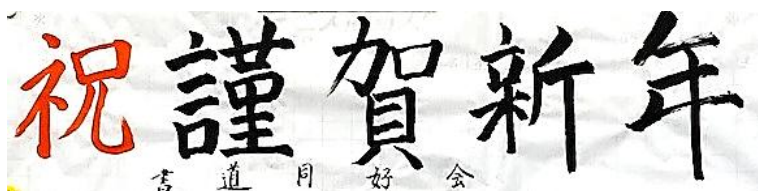 祝謹賀新年
書道同好会